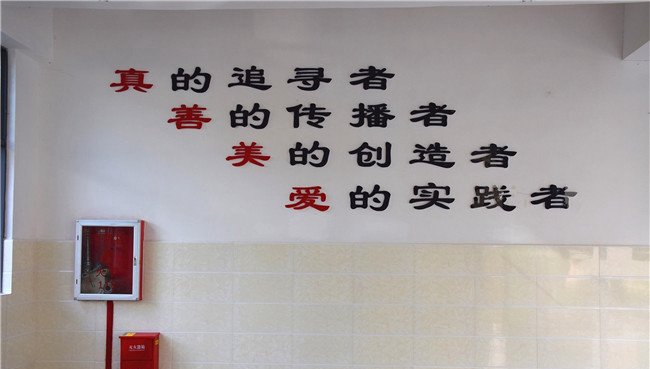 真的追寻者
善的传播者
美的创造者
爱的实践者
灭火器箱